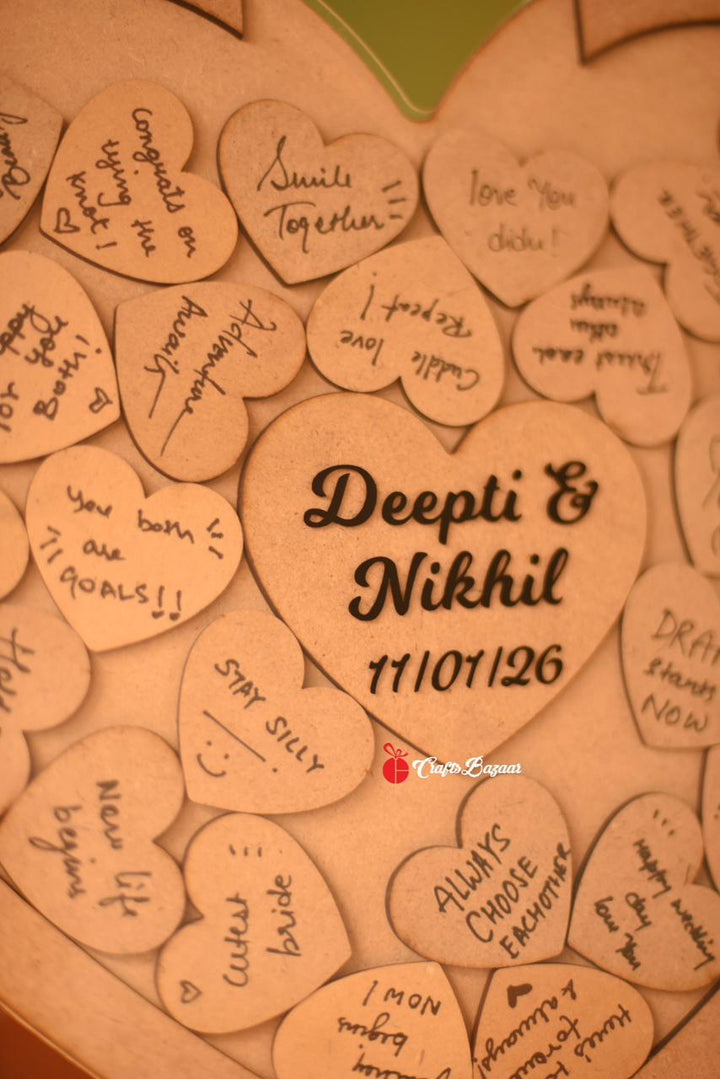 congrats on
tying the
knot!
Smile
Together
love You
didu!
TOGETHER
for you
Both!
Adventure
Awaits
Cuddle love
Repeat!
Trust each
other
always
You both
are
GOALS!!
Deepti &
Nikhil
11/01/26
STAY SILLY
DRAMA
starts
NOW
Crafts Bazaar
New life
begins
cutest
bride
ALWAYS
CHOOSE
EACHOTHER
Happy wedding
day
love You
begins
NOW!
Here's to
forever
& always!